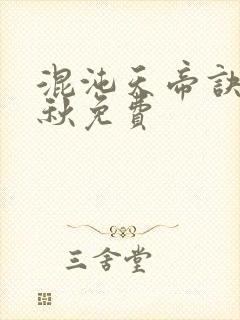 混沌天帝訣
秋免費
三舍堂